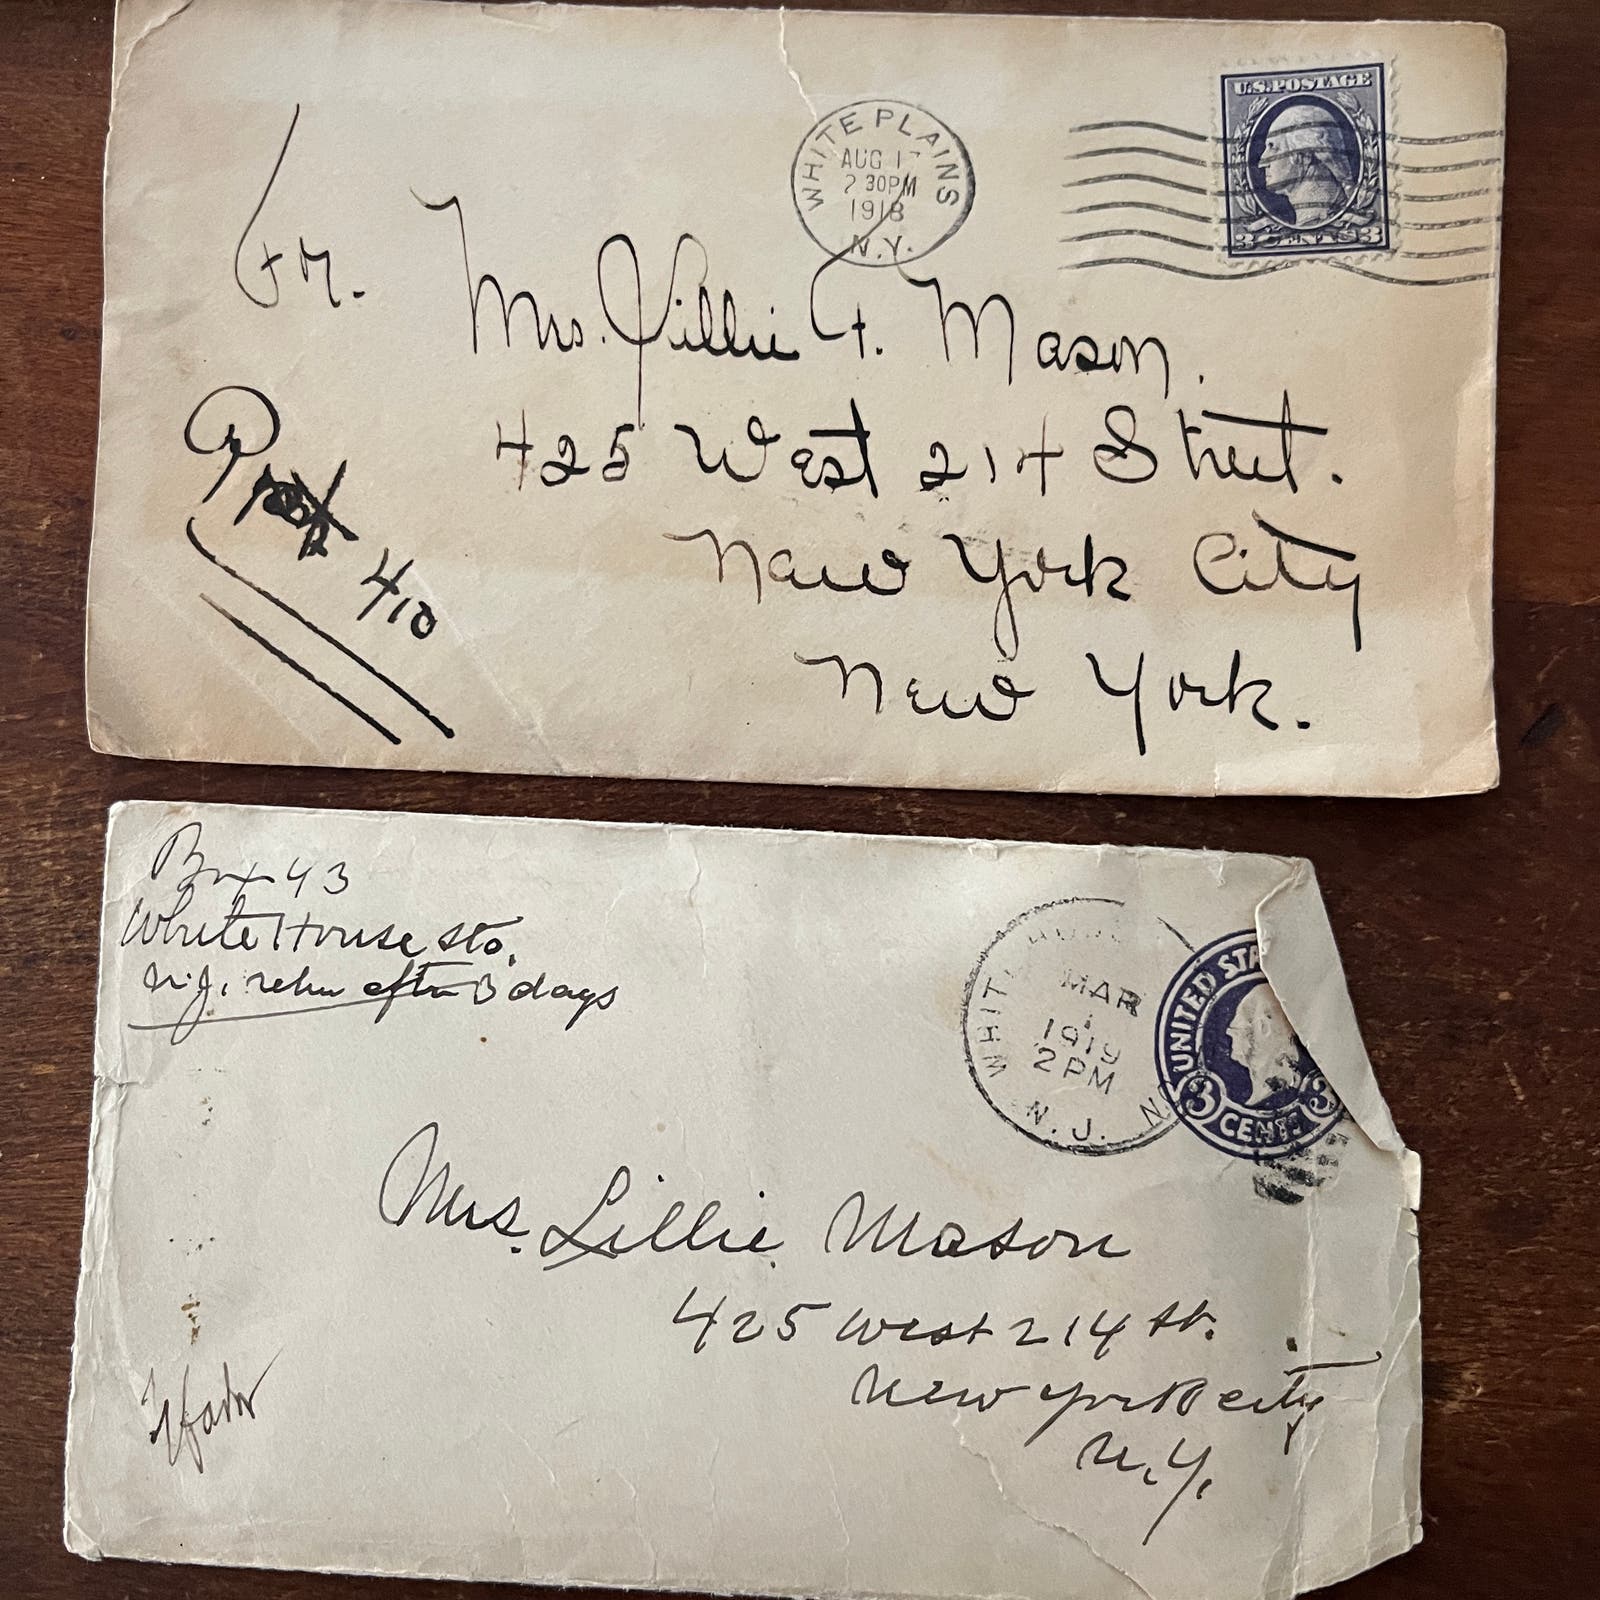 WHITE PLAINS
AUG 17
2 30PM
1918
N.Y.
U.S. POSTAGE
3 CENTS 3
Mrs. Lillie F. Mason.
425 West 214 Street.
New York City
New York.
410
Box 43
White House Sta.
N.J. return after 3 days
WHITE HOUSE
MAR
1
1919
2 PM
N.J.
UNITED STA
3 CENTS 3
Mrs. Lillie Mason
425 West 214 St.
New York City
N.Y.